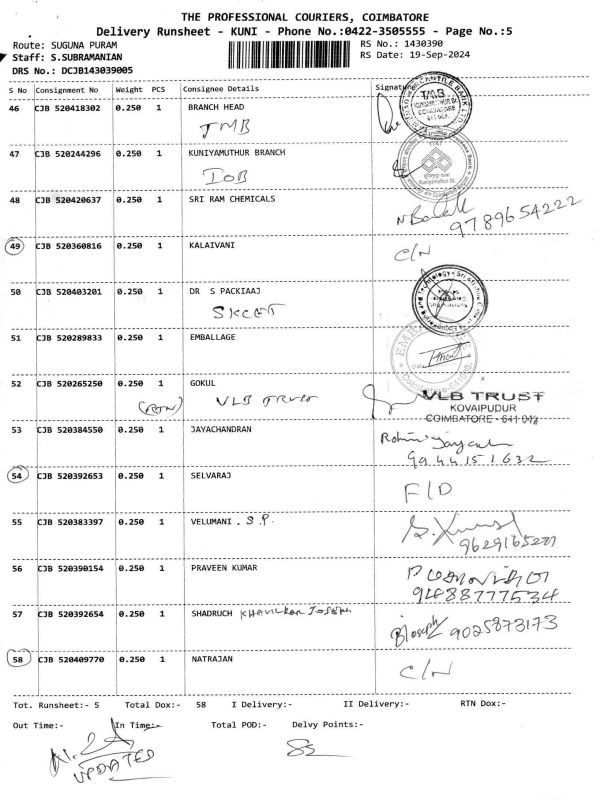 THE PROFESSIONAL COURIERS, COIMBATORE
Delivery Runsheet - KUNI - Phone No.:0422-3505555 - Page No.:5
Route: SUGUNA PURAM RS No.: 1430390
Staff: S.SUBRAMANIAN RS Date: 19-Sep-2024
DRS No.: DCJB143039005
S No Consignment No Weight PCS Consignee Details Signature
46 CJB 520418302 0.250 1 BRANCH HEAD
TMB
TMB
COIMBATORE
47 CJB 520244296 0.250 1 KUNIYAMUTHUR BRANCH
IOB
48 CJB 520420637 0.250 1 SRI RAM CHEMICALS
9789654222
49 CJB 520360816 0.250 1 KALAIVANI
C/N
50 CJB 520403201 0.250 1 DR S PACKIAAJ
SKCET
51 CJB 520289833 0.250 1 EMBALLAGE
52 CJB 520265250 0.250 1 GOKUL
VLB Trust
VLB TRUST
KOVAIPUDUR
COIMBATORE - 641 042
53 CJB 520384550 0.250 1 JAYACHANDRAN
9944151632
54 CJB 520392653 0.250 1 SELVARAJ
F/D
55 CJB 520383397 0.250 1 VELUMANI . S.P.
56 CJB 520390154 0.250 1 PRAVEEN KUMAR
9488777534
57 CJB 520392654 0.250 1 SHADRUCH
Joseph 9025873173
58 CJB 520409770 0.250 1 NATRAJAN
C/N
Tot. Runsheet:- 5 Total Dox:- 58 I Delivery:- II Delivery:- RTN Dox:-
Out Time:- In Time:- Total POD:- Delvy Points:-
UPDATED